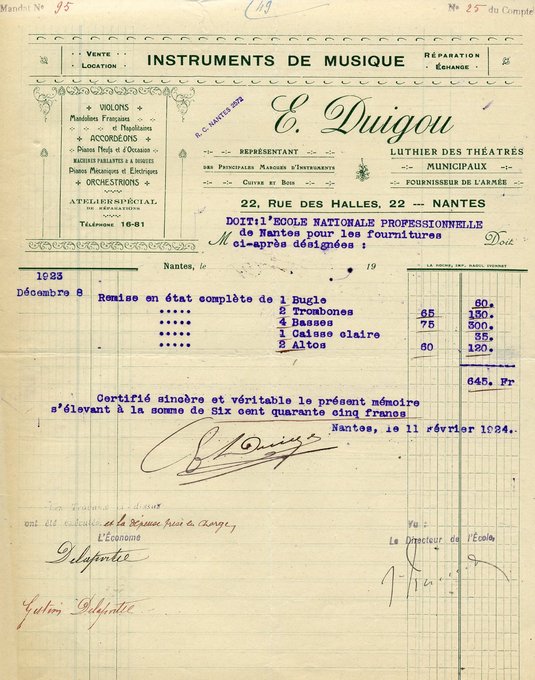 Mandat № 95
49
№ 25 du Compte
VENTE
LOCATION
INSTRUMENTS DE MUSIQUE
RÉPARATION
ÉCHANGE
VIOLONS
Mandolines Françaises
et Napolitaines
ACCORDÉONS
Pianos Neufs et d'Occasion
MACHINES PARLANTES & A DISQUES
Pianos Mécaniques et Electriques
ORCHESTRIONS
ATELIER SPÉCIAL
DE RÉPARATIONS
TÉLÉPHONE 16-81
R. C. NANTES 2572
E. Duigou
REPRÉSENTANT
DES PRINCIPALES MARQUES D'INSTRUMENTS
CUIVRE ET BOIS
LUTHIER DES THÉATRES
MUNICIPAUX
FOURNISSEUR DE L'ARMÉE
22, RUE DES HALLES, 22 --- NANTES
DOIT: l'ECOLE NATIONALE PROFESSIONNELLE
de Nantes pour les fournitures
M ci-après désignées : Doit
Nantes, le 19
LA ROCHE, IMP. RAOUL IVONNET
1923
Décembre 8 Remise en état complète de 1 Bugle 60.
..... 2 Trombones 65 130.
..... 4 Basses 75 300.
..... 1 Caisse claire 35.
..... 2 Altos 60 120.
645. Fr
Certifié sincère et véritable le présent mémoire
s'élevant à la somme de Six cent quarante cinq francs
Nantes, le 11 Février 1924.
E. Duigou
Les Travaux ci-dessus
ont été exécutés et la dépense prise en charge,
L'Économe
Delaportée
Vu :
Le Directeur de l'École,
Gestion Delaportée